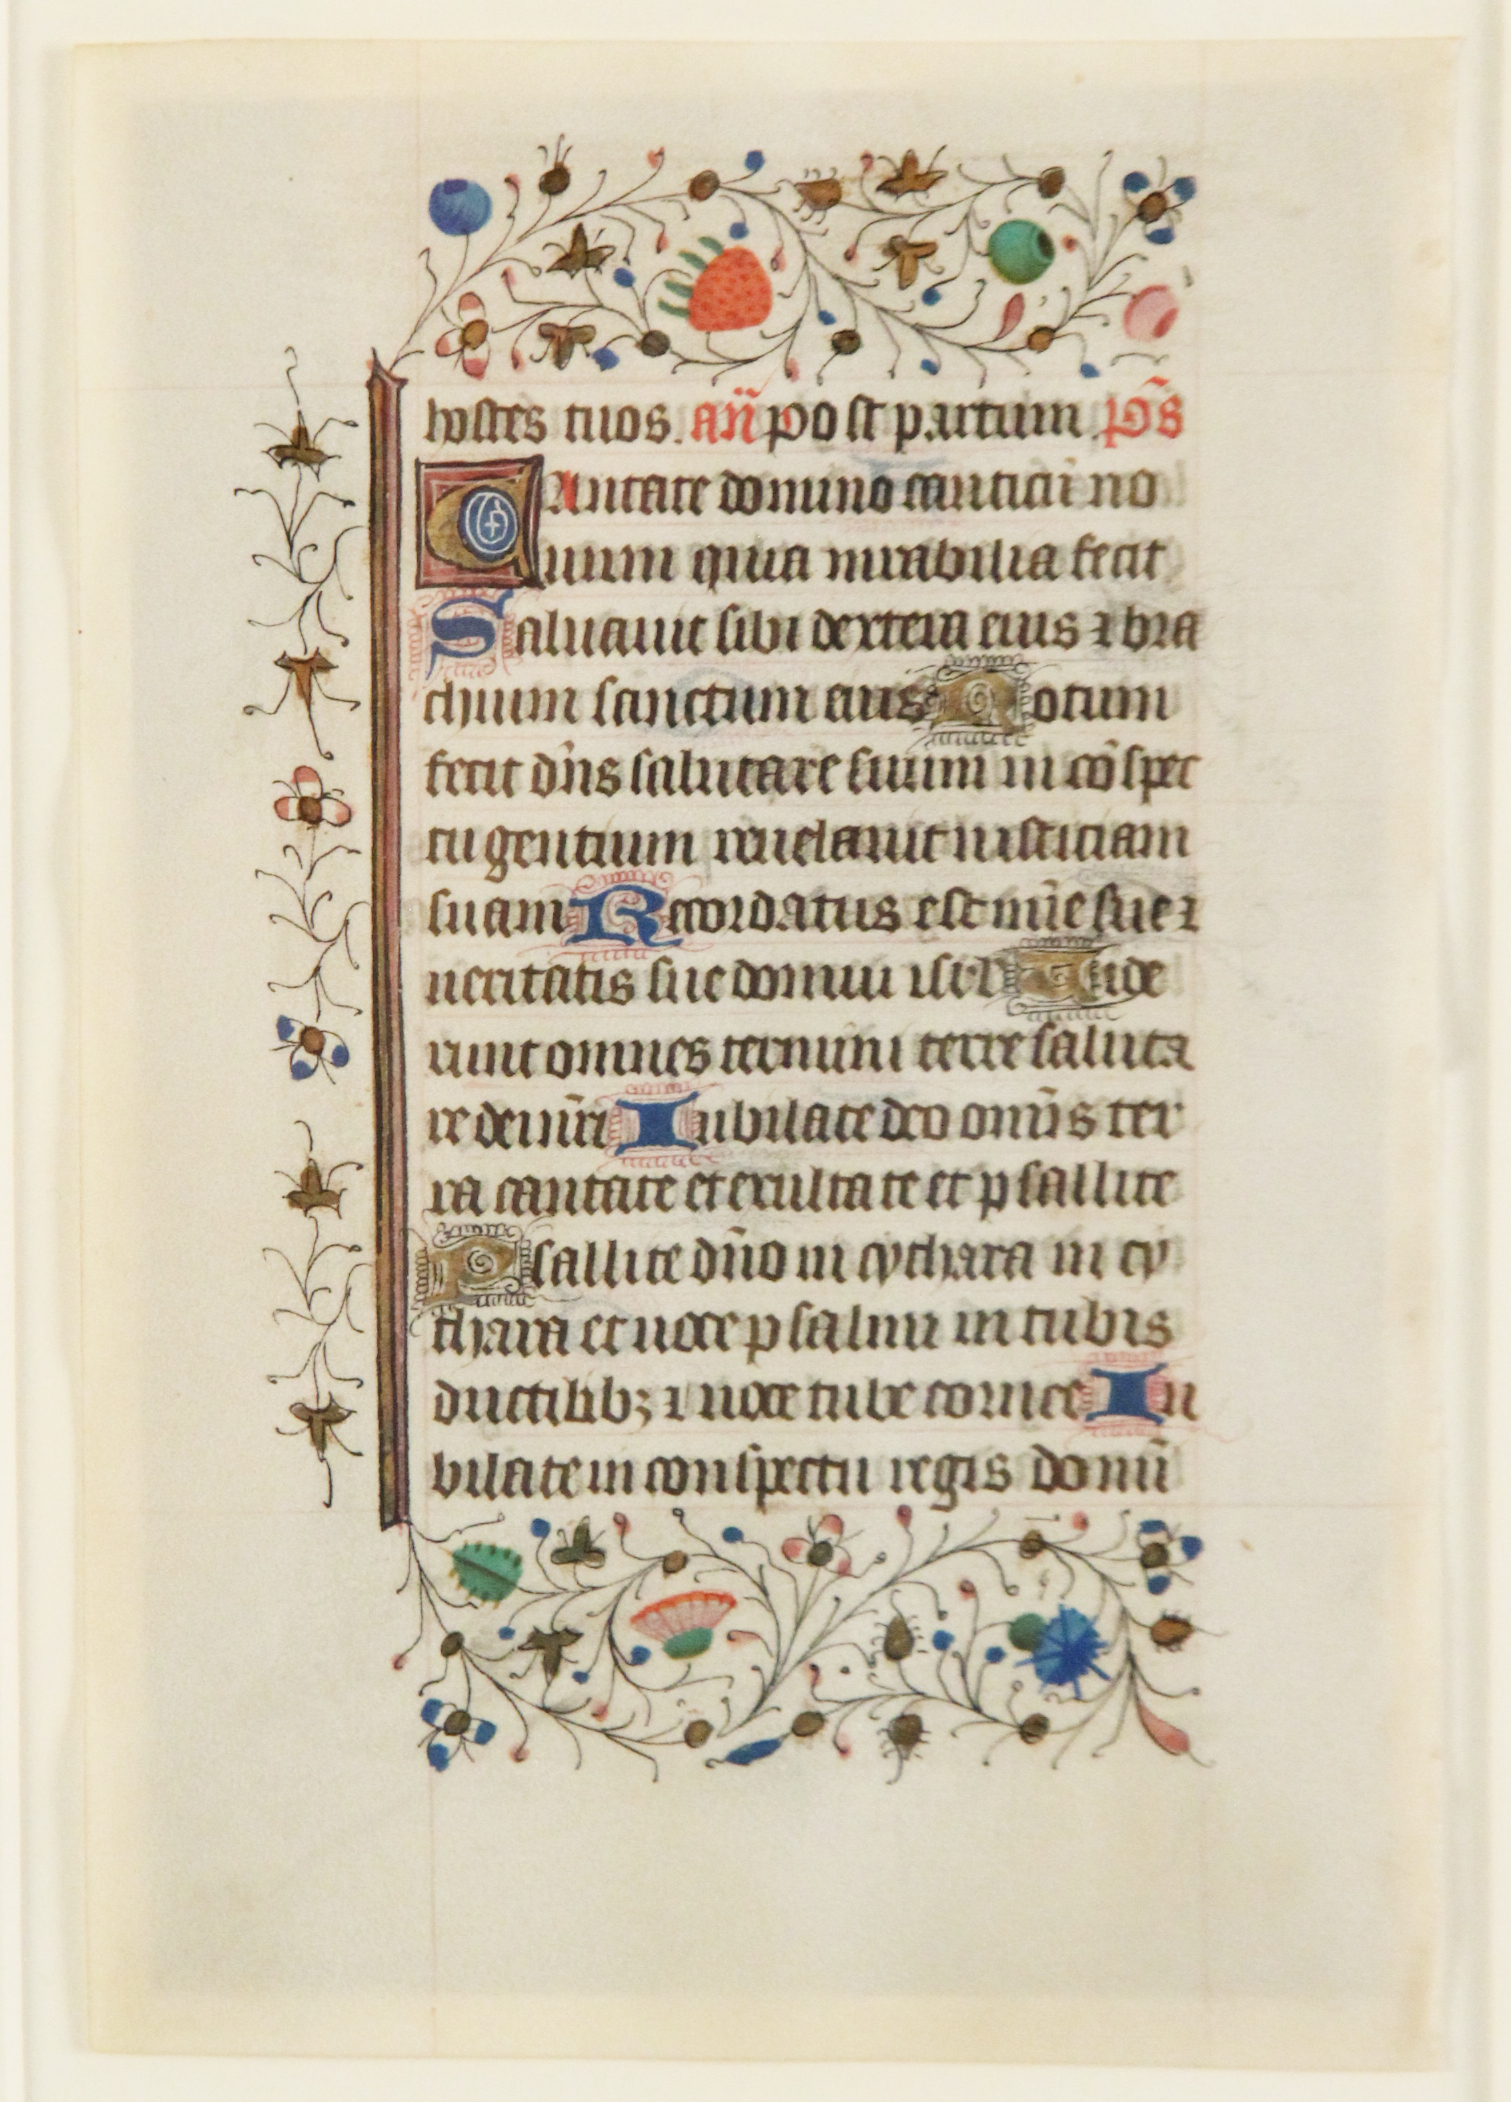 hostes tuos. an̄ post partum. p̄s
Cantate domino canticū no
uum quia mirabilia fecit
Saluauit sibi dextera eius ⁊ bra
chium sanctum eius Notum
fecit dn̄s salutare suum in cōspec
tu gentium reuelauit iusticiam
suam Recordatus est mīe sue ⁊
ueritatis sue domui isr̄l Uide
runt omnes termini terre saluta
re dei nr̄i Iubilate deo omīs ter
ra cantate et exultate et psallite
Psallite dn̄o in cythara in cy
thara et uoce psalmi in tubis
ductilibꝫ ⁊ uoce tube cornee Iu
bilate in conspectu regis domī